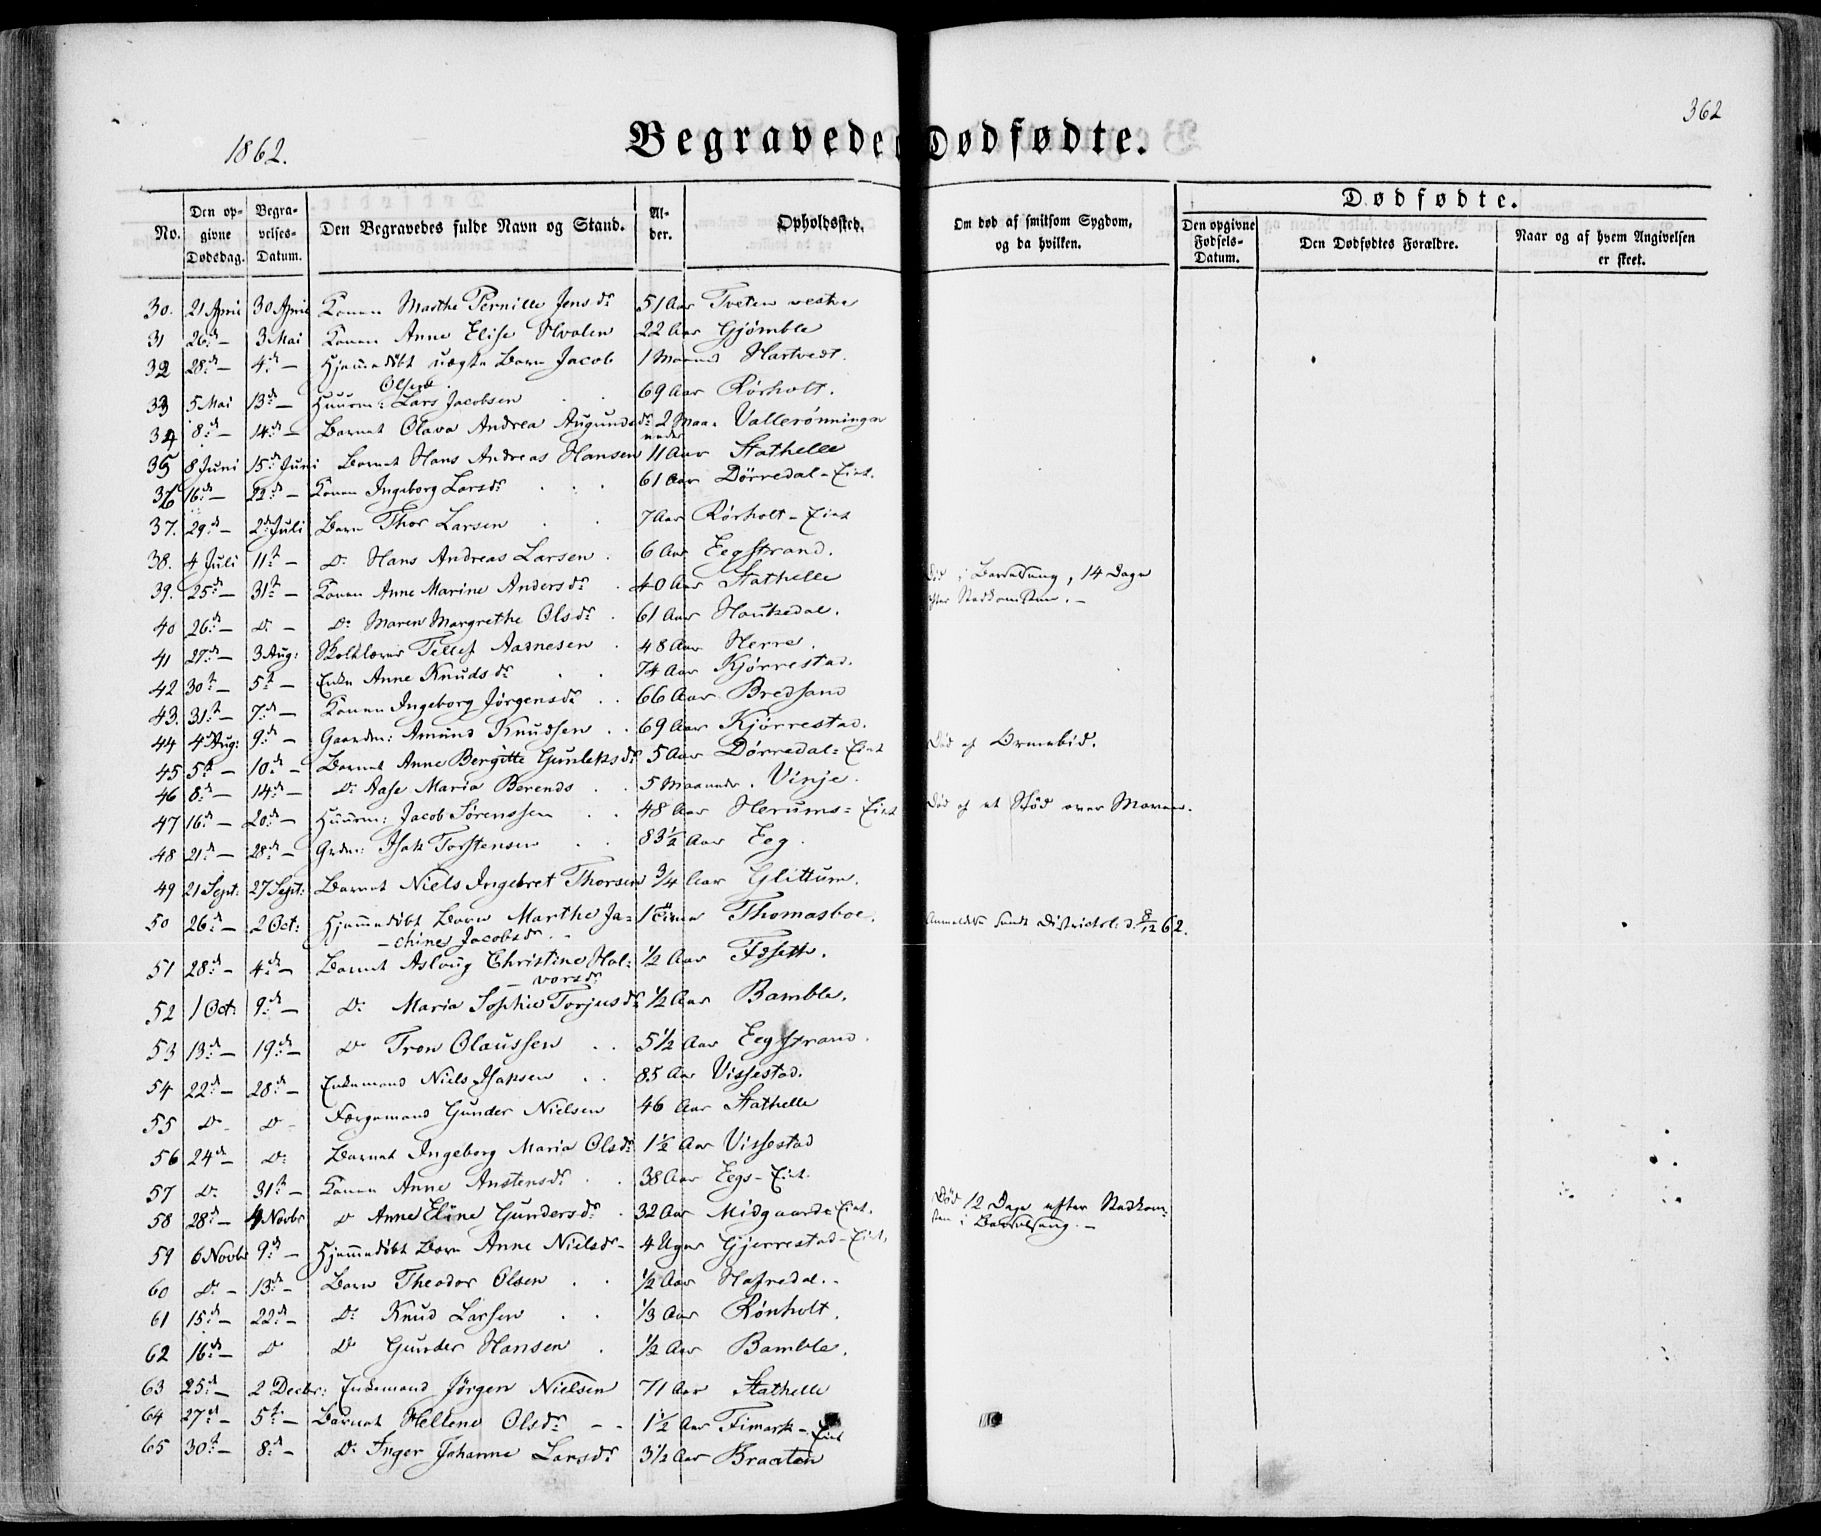 362
1862.
Begravede Dødfødte.
No. Den opgivne Dødsdag. Begravelses-Datum. Den Begravedes fulde Navn og Stand. Alder. Opholdssted. Om død af smitsom Sygdom, og da hvilken. Dødfødte.
Den opgivne Fødsels-Datum. Den Dødfødtes Forældre. Naar og af hvem Angivelsen er skeet.
30. 21 April 30 April Konen Marthe Pernille Jensdr 51 Aar Tveten vestre
31 26de – 3 Mai Konen Anne Elise Hvalen 22 Aar Gjømble
32 28de – 4de – Hjemmedøbt uægte Barn Jacob Olsen. 1 Maaned Hartvedt.
33 5 Mai 13de – Huusm: Lars Jacobsen 69 Aar Rørholt.
34 8de – 14de – Barnet Olava Andrea Augundsdr 2 Maaneder Vallerønningen
35 8 Juni 15de Juni Barnet Hans Andreas Hansen 11 Aar Stathelle
36 16de – 22de – Konen Ingeborg Larsdr 61 Aar Dørredal-Eiet.
37. 29de – 2de Juli Barn Thor Larsen 7 Aar Rørholt-Eiet
38. 4 Juli 11te – Do Hans Andreas Larsen. 6 Aar Eegstrand.
39. 25de – 31te – Konen Anne Marine Andersdr 40 Aar Stathelle Død i Barselseng, 14 Dage efter Nedkomsten. –
40 26de – Do – Do Maren Margrethe Olsdr. 61 Aar Haukedal.
41 27de – 3 Aug: Skolelærer Tellef Aasnesen. 48 Aar Herre.
42 30te – 5te – Enke Anne Knudsdr 74 Aar Kjørrestad.
43. 31te – 7de – Konen Ingeborg Jørgensdr 66 Aar Bredsand
44 4 Aug: 9de – Gaardm: Amund Knudsen 69 Aar Kjørrestad.
45 5te – 10de – Barnet Anne Bergitte Gunleksdr 5 Aar Dørredal-Eiet Død af Ormebid.
46 8de – 14de – Do Aase Maria Berends 5 Maaneder. Vinje.
47 16de – 20de – Huusm: Jacob Sørenssen 48 Aar Herums-Eiet Død af et Stød over Maven.
48 21de – 28de – Grdm: Isak Torstensen 83½ Aar Eeg.
49 21 Sept: 27 Sept: Barnet Niels Ingebret Thorsen ¾ Aar Glittum.
50 26de – 2 Oct: Hjemmedøbt Barn Marthe Jachine Jacobsdr. 1 Time Thomasboe. Anmeldelse sendt Districtsl: d. 8/12 62.
51 28de – 4de – Barnet Aslaug Christine Halvorsdr ½ Aar Fosette.
52 1 Oct: 9de – Do Maria Sophie Torjusdr ½ Aar Bamble.
53 13de – 19de – Do Tron Olaussen 5½ Aar Eegstrand.
54 22de – 28de – Enkemand Niels Isaksen 85 Aar Vissestad.
55 Do – Do – Færgemand Gunder Nielsen 46 Aar Stathelle
56 24de – Do Barnet Ingeborg Maria Olsdr 1½ Aar Vissestad
57 Do 31te – Konen Anne Anstensdr 38 Aar Eegs-Eiet.
58 28de – 4 Novbr Do Anne Eline Gundersdr. 32 Aar Midgaards-Eiet. Død 12 Dage efter Nedkomsten i Barselseng. –
59 6 Novbr 9de – Hjemmedøbt Barn Anne Nielsdr – 4 Uger Gjerrestad-Eiet.
60 Do – 13de – Barn Theodor Olsen ½ Aar Hafredal. –
61 15de – 22de – Do Knud Larsen ⅓ Aar Rønholt.
62 16de – Do Do Gunder Hansen ½ Aar Bamble.
63 25de – 2 Decbr: Enkemand Jørgen Nielsen 71 Aar Stathelle
64 27de – 5te – Barnet Hellene Olsdr – – 1½ Aar Fimark-Eiet
65 30te – 8de – Do Inger Johanne Larsdr 3½ Aar Braaten